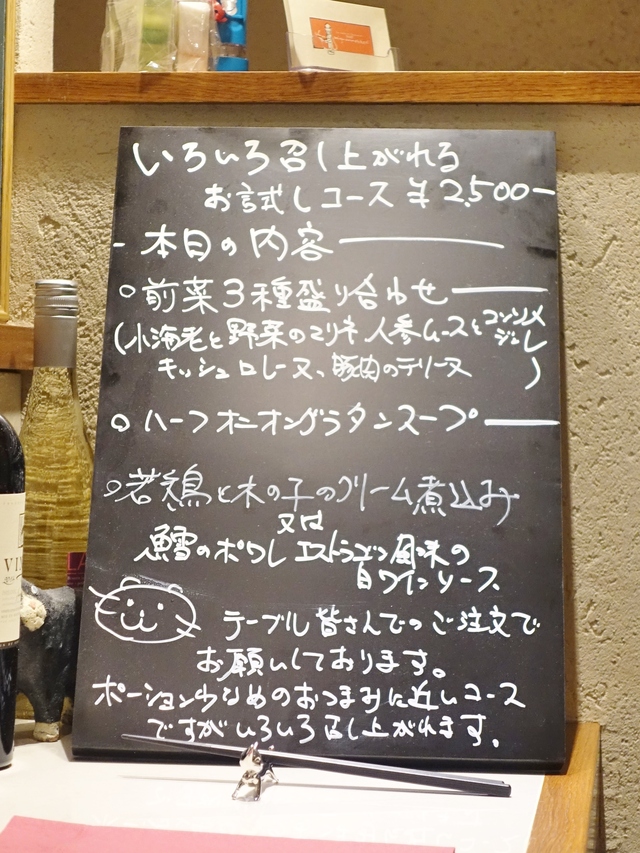 いろいろ召し上がれる
お試しコース ¥2,500-
- 本日の内容
○前菜3種盛り合わせ
(小海老と野菜のマリネ 人参ムースとコンソメジュレ
キッシュロレーヌ、豚肉のテリーヌ)
○ハーフオニオングラタンスープ
○若鶏と木の子のクリーム煮込み
又は
鱈のポワレ エストラゴン風味の
白ワインソース
テーブル皆さんでのご注文で
お願いしております。
ポーション少なめのおつまみに近いコース
ですがいろいろ召し上がれます。